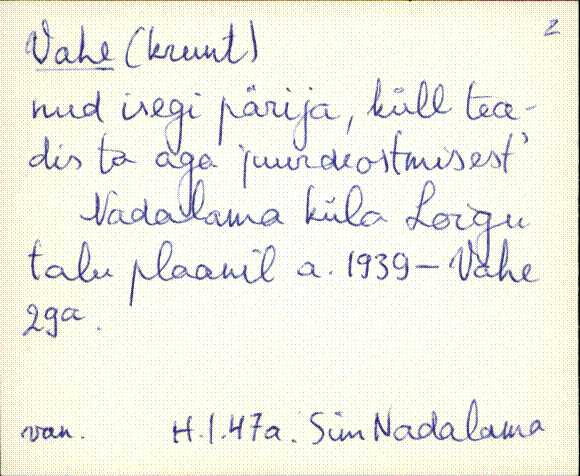 2
Vahe (krunt)
nud isegi pärija, küll tea-
dis ta aga juurdeostmisest
Nadalama küla Loigu
talu plaanil a. 1939 – Vahe
29a.
van. H. I. 47a. Sim Nadalama